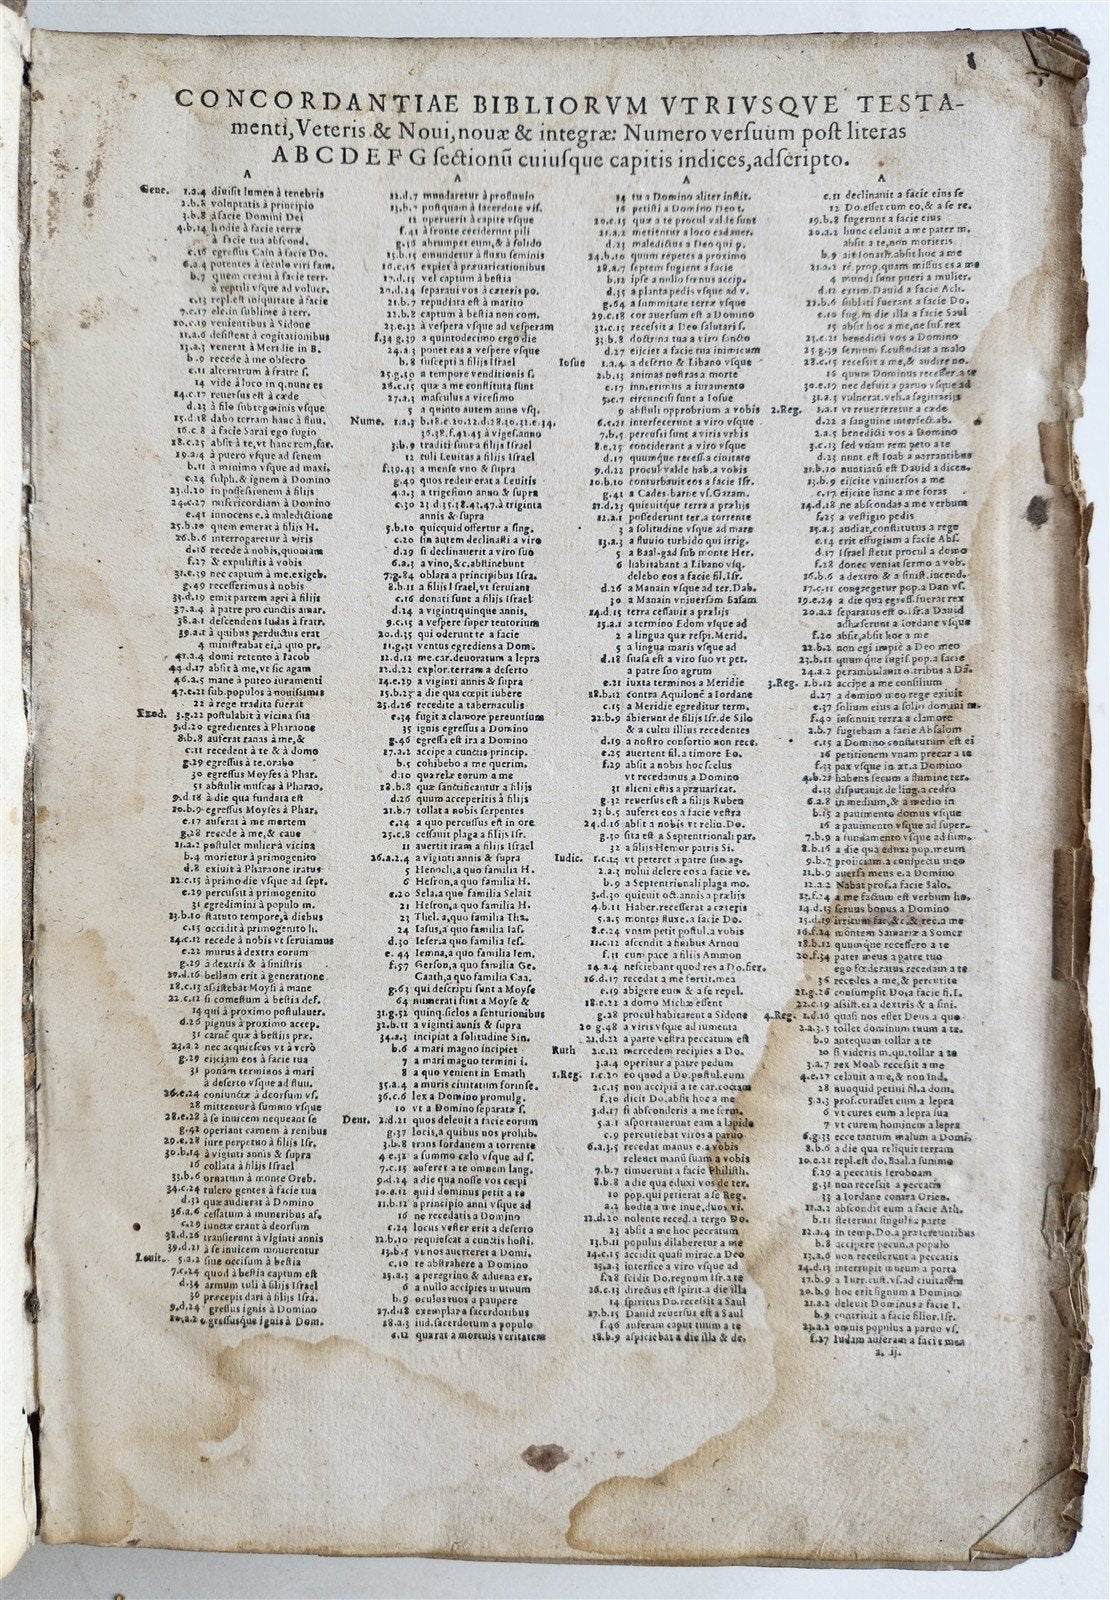 CONCORDANTIAE BIBLIORVM VTRIVSQVE TESTA-
menti, Veteris & Noui, nouæ & integræ: Numero versuum post literas
A B C D E F G sectionū cuiusque capitis indices, adscripto.
A
Gene. 1.a.4 diuisit lumen à tenebris
2.b.8 voluptatis à principio
3.b.8 à facie Domini Dei
4.b.14 hodie à facie terræ
à facie tua abscond.
c.16 egressus Cain à facie Do.
6.a.4 potentes à seculo viri fam.
b.7 quem creaui à facie terr.
à reptili vsque ad volucr.
c.13 repl.est iniquitate à facie
7.c.17 ele.in sublime à terr.
10.c.19 venientibus à Sidone
11.a.6 desistent à cogitationibus
13.a.3 venerat à Meridie in B.
b.9 recede à me obsecro
c.11 alterutrum à fratre s.
14 vide à loco in q.nunc es
14.c.17 reuersus est à cæde
d.23 à filo subtegminis vsque
15.d.18 dabo terram hanc à fluu.
16.c.8 à facie Sarai ego fugio
18.c.25 absit à te, vt hanc rem, fac.
19.a.4 à puero vsque ad senem
b.11 à minimo vsque ad maxi.
c.24 sulph. & ignem à Domino
23.d.20 in possessionem à filijs
24.c.27 misericordiam à Domino
e.41 innocens e. à maledictione
25.b.10 quem emerat à filijs H.
26.b.6 interrogaretur à viris
d.16 recede à nobis, quoniam
f.27 & expulistis à vobis
31.e.39 nec captum à me.exigeb.
g.49 recesserimus à nobis
33.d.19 emit partem agri à filijs
37.a.4 à patre pro cunctis amar.
38.a.1 descendens Iudas à fratr.
39.a.1 à quibus perductus erat
4 ministrabat ei, à quo pr.
41.a.4 domi retento à Iacob
44.d.17 absit à me, vt sic agam
46.a.5 mane à puteo iuramenti
47.e.21 sub.populos à nouissimis
22 à rege tradita fuerat
Exod. 3.g.22 postulabit à vicina sua
5.d.20 egredientes à Pharaone
8.b.8 auferat ranas à me, &
c.11 recedent à te & à domo
g.29 egressus à te, orabo
30 egressus Moyses à Phar.
31 abstulit muscas à Pharao.
9.d.18 à die qua fundata est
10.b.9 egressus Moyses à Phar.
e.17 auferat à me mortem
g.28 recede à me, & caue
11.a.2 postulet mulier à vicina
b.4 morietur à primogenito
d.8 exiuit à Pharaone iratus
12.c.15 à primo die vsque ad sept.
e.29 percussit à primogenito
31 egredimini à populo m.
13.b.10 statuto tempore, à diebus
c.15 occidit à primogenito h.
14.c.12 recede à nobis vt seruiamus
e.22 murus à dextra eorum
g.29 à dextris & à sinistris
17.d.16 bellum erit à generatione
18.c.13 assistebat Moysi à mane
22.c.12 si comestum à bestia def.
14 qui à proximo postulauer.
d.26 pignus à proximo accep.
31 carnē quæ à bestijs præ.
23.a.2 nec acquiesces vt à vero
g.29 eijciam eos à facie tua
31 ponam terminos à mari
à deserto vsque ad fluu.
26.e.24 coniunctæ à deorsum vs.
28 mittentur à summo vsque
28.e.28 à se inuicem nequeant se
g.42 operiant carnem à renibus
29.e.28 iure perpetuo à filijs Isr.
30.b.14 à viginti annis & supra
16 collata à filijs Israel
33.b.6 ornatum à monte Oreb.
34.c.24 tulero gentes à facie tua
d.32 quæ audierat à Domino
36.a.6 cessatum à muneribus af.
c.29 iunctæ erant à deorsum
38.d.26 transierunt à viginti annis
39.d.21 à se inuicem mouerentur
Leuit. 5.a.2 siue occisum à bestia
7.c.24 quod à bestia captum est
d.34 armum tuli à filijs Israel
36 præcepit dari à filijs Isra.
9.d.24 gressus ignis à Domino
10.a.2 gressusque ignis à Dom.
A
11.d.7 mundaretur à profluuio
13.b.7 postquam à sacerdote vis.
12 operuerit à capite vsque
f.41 à fronte ceciderunt pili
g.56 abrumpet eum, & à solido
15.b.15 emundetur à fluxu seminis
16.c.16 expiet à præuaricationibus
17.d.15 vel captum à bestia
20.d.24 separaui vos à cæteris po.
21.b.7 repudiata est à marito
22.b.8 captum à bestia non com.
23.e.32 à vespera vsque ad vesperam
f.34 g.39 a quintodecimo ergo die
24.a.3 ponet eas a vespere vsque
b.8 suscepti a filijs Israel
25.g.50 a tempore venditionis s.
26.c.15 quæ a me constituta sunt
27.a.3 masculus a vicesimo
5 a quinto autem anno vsq.
Nume. 1.a.3 b.18.c.20.22.d.28.30.32.e.34.
36.38.f.42.45 à viges.anno
3.b.9 traditi sunt a filijs Israel
12 tuli Leuitas a filijs Israel
f.39.43 a mense vno & supra
g.49 quos redemerat a Leuitis
4.a.3 a trigesimo anno & supra
c.30 23.d.35.38.43.47. à triginta
annis & supra
5.b.10 quicquid offertur a sing.
c.20 sin autem declinasti a viro
d.29 si declinauerit a viro suo
6.a.3 a vino, &c. abstinebunt
7.g.84 oblata a principibus Isra.
8.b.11 a filijs Israel, vt seruiant
c.16 donati sunt a filijs Israel
d.24 a vigintiquinque annis,
9.c.15 a vespere super tentorium
20.d.35 qui oderunt te a facie
11.g.31 ventus egrediens a Dom.
12.d.12 me.car.deuoratum a lepra
13.d.22 explor.terram a deserto
14.e.29 a viginti annis & supra
15.b.23 a die qua cœpit iubere
25.d.26 recedite a tabernaculis
e.34 fugit a clamore pereuntium
35 ignis egressus a Domino
g.46 egressa est ira a Domino
17.a.2 accipe a cunctis princip.
b.5 cohibebo a me querim.
d.10 quærelæ eorum a me
18.b.8 quæ sanctificantur a filijs
d.26 quum acceperitis à filijs
21.b.7 tollat a nobis serpentes
e.24 a quo percussus est in ore
25.c.8 cessauit plaga a filijs Isr.
11 auertit iram a filijs Israel
26.a.2.4 a viginti annis & supra
5 Henoch, a quo familia H.
6 Hesron, a quo familia H.
e.20 Sela, a quo familia Selait
21 Hesron, a quo familia H.
23 Thol. a, quo familia Tha.
24 Iasus, a quo familia Ias.
d.30 Ieser. a quo familia Ies.
e.44 Iemna, a quo familia Iem.
f.57 Gerson, a quo familia Ge.
Caath, a quo familia Caa.
g.63 qui descripti sunt a Moyse
64 numerati sunt a Moyse &
31.g.52 quinq.siclos a centurionibus
32.b.11 a viginti annis & supra
34.a.3 incipiat a solitudine Sin.
b.6 a mari magno incipiet
7 a mari magno termini i.
8 a quo venient in Emath
35.a.4 a muris ciuitatum forinse.
36.c.6 lex a Domino promulg.
10 vt a Domino separatæ s.
Deut. 2.d.21 quos deleuit a facie eorum
g.37 locis, a quibus nos prohib.
3.b.8 trans Iordanem a torrente
4.e.32 a summo cælo vsque ad s.
7.c.15 auferet a te omnem lang.
9.d.24 a die qua nosse vos cœpi
10.e.12 quid dominus petit a te
11.b.12 a principio anni vsque ad
16 ne recedatis a Domino
c.24 locus vester erit a deserto
12.b.10 requiescat a cunctis hosti.
13.b.5 vt nos auerteret a Domi.
c.10 te abstrahere a Domino
15.a.3 a peregrino & aduena ex.
6 a nullo accipies mutuum
b.9 oculos tuos a paupere
17.d.18 exemplar a sacerdotibus
18.a.3 iud.sacerdotum a populo
e.12 quærat a mortuis veritatem
A
14 tu a Domino aliter instit.
16 petisti a Domino Deo t.
20.c.15 quæ a te procul valde sunt
21.a.2 metientur a loco cadauer.
d.23 maledictus a Deo qui p.
24.b.10 quum repetes a proximo
28.a.7 septem fugient a facie
b.12 ipse a nullo fœnus accip.
d.35 a planta pedis vsque ad v.
g.64 a summitate terræ vsque
29.c.18 cor auersum est a Domino
32.c.15 recessit a Deo salutari s.
33.b.8 doctrina tua a viro sancto
d.27 eijciet a facie tua inimicum
Iosue 1.a.4 a deserto & Libano vsque
2.b.13 animas nostras a morte
c.17 innerimus a iuramento
5.c.7 circuncisi sunt a Iosue
9 abstuli opprobrium a vobis
6.c.21 interfecerunt a viro vsque
7.b.5 percussi sunt a viris vrbis
8.e.25 conciderant a viro vsque
d.17 quumque recess.a ciuitate
9.d.22 procul valde hab.a vobis
10.b.10 conturbauit eos a facie Isr.
g.41 a Cades.barne vs.Gazam.
11.d.23 quieuitque terra a prælijs
12.a.1 possederunt ter.a torrente
3 a solitudine vsque ad mare
13.a.3 a fluuio turbido qui irrig.
5 a Baal-gad sub monte Her.
6 habitabant a Libano vsq.
delebo eos a facie fil.Isr.
d.26 a Manaim vsque ad ter.Dab.
30 a Manain vniuersam Basam
14.d.15 terra cessauit a prælijs
15.a.1 a termino Edom vsque ad
2 a lingua quæ respi.Merid.
5 a lingua maris vsque ad
d.18 suasa est a viro suo vt pet.
a patre suo agrum
e.21 iuxta terminos a Meridie
18.b.12 contra Aquilonē a Iordane
c.15 a Meridie egreditur term.
22.b.9 abierunt de filijs Isr.de Silo
& a cultu illius recedentes
d.19 a nostro consortio non rece.
e.25 auertent fil.a timore Do.
f.29 absit a nobis hoc scelus
vt recedamus a Domino
31 alieni estis a præuaricat.
g.32 reuersus est a filijs Ruben
23.b.5 auferet eos a facie vestra
24.d.16 absit a nobis vt relin.Do.
g.30 sita est a Septentrionali par.
32 a filijs Hemor patris Si.
Iudic. 1.c.14 vt peteret a patre suo ag.
2.a.3 nolui delere eos a facie ve.
b.9 a Septentrionali plaga mo.
3.d.30 quieuit oct.annis a prælijs
4.b.11 Haber.recesserat a cæteris
5.a.5 montes fluxe.a facie Do.
8.e.24 vnam petit postul.a vobis
11.c.12 ascendit a finibus Arnon
f.33 cum pace a filijs Ammon
14.a.4 nesciebant quod res a Do.fier.
16.d.17 recedat a me fortit.mea
e.19 abigere eum & a se repel.
18.e.22 a domo Michæ essent
g.28 procul habitarent a Sidone
20.g.48 a viris vsque ad iumenta
21.d.22 a parte vestra peccatum est
Ruth 2.c.12 mercedem recipies a Do.
3.a.4 operitur a parte pedum
1.Reg. 1.c.20 eo quod a Do.postul.eum
2.c.15 non accipiā a te car.coctam
f.30 dicit Do.absit hoc a me
3.d.17 si absconderis a me serm.
5.a.1 asportauerunt eam a lapide
c.9 percutiebat viros a paruo
6.a.3.5 recedat manus e.a vobis
releuet manū suam a vobis
7.b.7 timuerunt a facie Philisth.
8.b.8 a die qua eduxi vos de ter.
10 pop.qui petierat a se Reg.
a.2 hodie a me inue.duos vi.
12.d.20 nolente reced.a tergo Do.
23 absit a me hoc peccatum
13.b.11 populus dilaberetur a me
14.c.15 accidit quasi mirac.a Deo
15.a.3 interfice a viro vsque ad
f.28 scidit Do.regnum Isr.a te
26.c.13 directus est spirit.a die illa
14 spiritus Do.recessit a Saul
17.b.15 Dauid reuersus est a Saul
f.46 auferam caput tuum a te
18.b.9 aspiciebat a die illa & de.
A
c.11 declinauit a facie eius se
12 Do.esset cum eo, & a se re.
19.b.8 fugerunt a facie eius
20.a.2 hunc celauit a me pater m.
absit a te, non morieris
b.9 ait Ionath.absit hoc a me
21.a.2 rē.prop.quam missus es a me
4 mundi sunt pueri a mulier.
d.12 extim.Dauid a facie Ach.
22.b.6 sublati fuerant a facie Do.
e.10 fug.in die illa a facie Saul
15 absit hoc a me, ne sus.rex
23.e.21 benedicti vos a Domino
25.g.39 seruum s.custodiat a malo
28.c.15 recessit a me, & audire no.
16 quum Dominus recesser.a te
30.e.19 nec defuit a paruo vsque ad
31.a.3 vulnerat.veh.a sagittarijs
2.Reg. 1.a.1 vt reuerteretur a cæde
d.22 a sanguine interfect.ab.
2.a.5 benedicti vos a Domino
3.c.13 sed vnam rem peto a te
d.23 nunt.est Ioab a narrantibus
11.b.10 nuntiatū est Dauid a dicen.
13.b.9 eijcite vniuersos a me
c.17 eijcite hanc a me foras
14.d.18 ne abscondas a me verbum
f.25 a vestigio pedis
15.a.3 audiat, constitutus a rege
c.14 erit effugium a facie Abs.
d.17 Israel stetit procul a domo
f.28 donec veniat sermo a vob.
16.b.6 a dextro & a sinist.incend.
17.c.11 congregetur pop.a Dan vs.
19.e.24 a die qua egress.fuerat rex
20.a.2 separatus est o.Isr.a Dauid
adhæserunt a Iordane vsque
f.20 absit, absit hoc a me
22.b.2 non egi impiè a Deo meo
23.b.11 quumque fugis.pop.a facie
24.a.2 perambulauit o.tribus a Dā.
3.Reg. 1.b.12 accipe a me consilium
d.27 a domino meo rege exiuit
e.37 solium eius a solio domini m.
f.40 insonuit terra a clamore
2.b.7 fugiebam a facie Absalom
c.15 a Domino constitutum est ei
16 petitionem vnam precar a te
f.33 pax vsque in æt.a Domino
4.b.21 habens secum a flumine ter.
d.33 disputauit de ling.a cedro
6.a.8 in medium, & a medio in
b.15 a pauimento domus vsque
16 a pauimento vsque ad super.
7.b.9 a fundamento vsque ad sum.
8.b.16 a die qua eduxi pop.meum
9.b.7 proijciam a conspectu meo
11.b.9 auersa mens e.a Domino
12.a.2 Nabat prof.a facie Salo.
13.f.24 a me factum est verbum ho.
14.d.13 sermo bonus a Domino
15.d.19 irritum fac, &c. & rec.a me
16.f.24 montem Samariæ a Somer
18.b.12 quumque recessero a te
20.f.34 pater meus a patre tuo
ego fœderatus recedam a te
36 recedes a me, & percutite
21.g.26 consumpsit Do.a facie fi.I.
22.c.19 assist.ei a dextris & a sini.
4.Reg. 1.d.16 quasi non esset Deus a quo
2.a.3.5 tollet dominum tuum a te.
b.9 antequam tollar a te
10 si videris m.qu.tollar a te
3.a.7 rex Moab recessit a me
4.e.27 celauit a me, & non ind.
28 nunquid petiui fil.a dom.
5.a.3 prof.curasset eum a lepra
6 vt cures eum a lepra sua
7 vt curem hominem a lepra
6.g.33 ecce tantum malum a Domi.
8.b.6 a die qua reliquit terram
10.e.21 repl.est do.Baal.a summo
f.29 a peccatis Ieroboam
g.31 non recessit a peccatis
33 a Iordane contra Orien.
11.a.2 abscondit eum a facie Ath.
b.11 steterunt singuli a parte
12.a.4 in temp.Do.a prætereuntibus
b.8 accipere pecun.a populo
13.a.6 non recesserunt a peccatis
14.d.13 interrupit murum a porta
17.b.9 a Turr.cust.vs.ad ciuitatem
20.b.9 hoc erit signum a Domino
21.a.2 deleuit Dominus a facie I.
b.9 contriuit a facie filior.Isr.
23.a.2 omnis populus a paruo vs.
f.27 Iudam auferam a facie mea
a. ij.